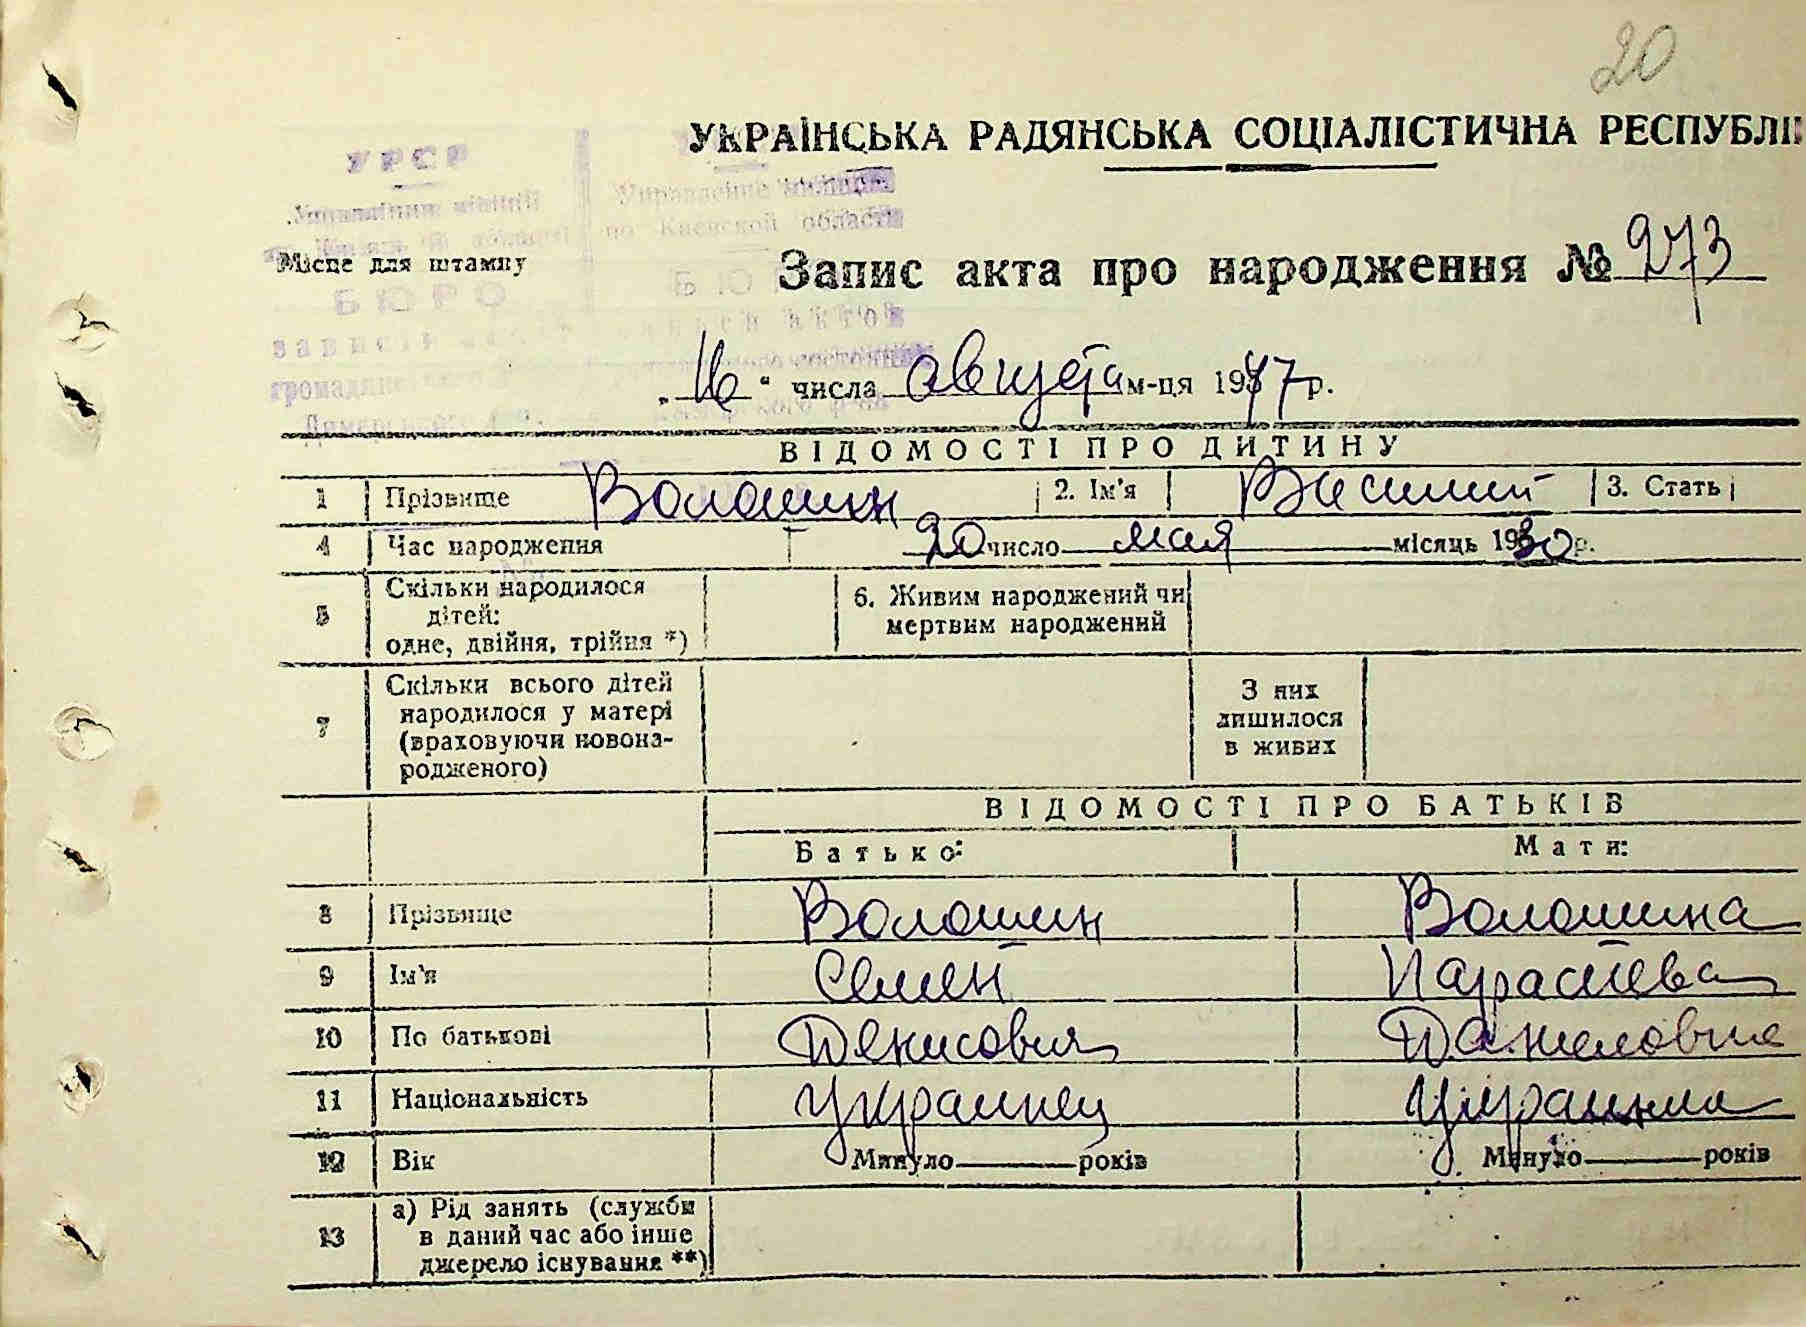 20
УКРАЇНСЬКА РАДЯНСЬКА СОЦІАЛІСТИЧНА РЕСПУБЛІ
УРСР
Управління міліції Управление милиции
по Киевской области
Місце для штампу
Запис акта про народження № 273
БЮРО БЮ
„16“ числа августа м-ця 1947 р.
ВІДОМОСТІ ПРО ДИТИНУ
1 Прізвище Волошин 2. Ім'я Василий 3. Стать
4 Час народження 20 число мая місяць 1930 р.
5 Скільки народилося дітей: одне, двійня, трійня *) 6. Живим народжений чи мертвим народжений
7 Скільки всього дітей народилося у матері (враховуючи новонародженого) З них лишилося в живих
ВІДОМОСТІ ПРО БАТЬКІВ
Батько: Мати:
8 Прізвище Волошин Волошина
9 Ім'я Семен Парастева
10 По батькові Денисович Даниловна
11 Національність Украинец Украинка
12 Вік Минуло років Минуло років
13 а) Рід занять (служби в даний час або інше джерело існування **)